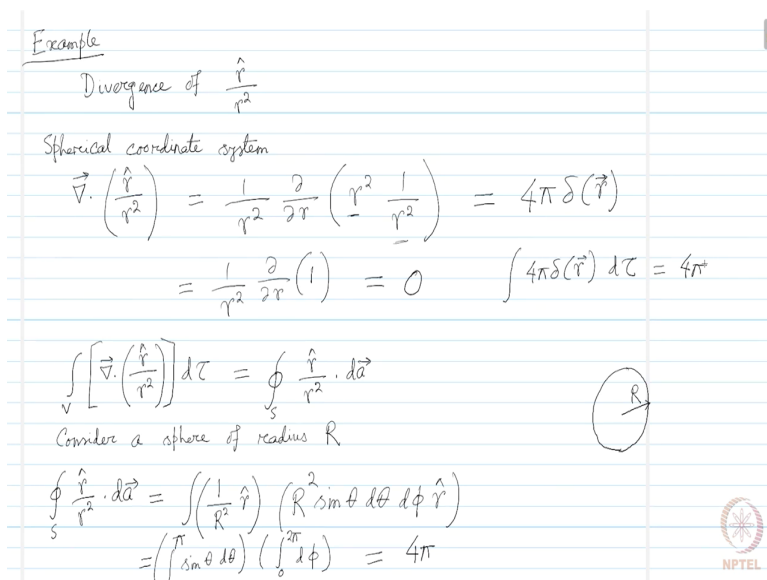 Example
Divergence of r̂/r²
Spherical coordinate system
∇⃗·(r̂/r²) = 1/r² ∂/∂r (r² 1/r²) = 4πδ(r⃗)
= 1/r² ∂/∂r (1) = 0 ∫4πδ(r⃗) dτ = 4π
∫_V [∇⃗·(r̂/r²)] dτ = ∮_S r̂/r² · da⃗
R
Consider a sphere of radius R
∮_S r̂/r² · da⃗ = ∫(1/R² r̂) (R² sin θ dθ dϕ r̂)
= (∫^π sin θ dθ) (∫_0^2π dϕ) = 4π
NPTEL